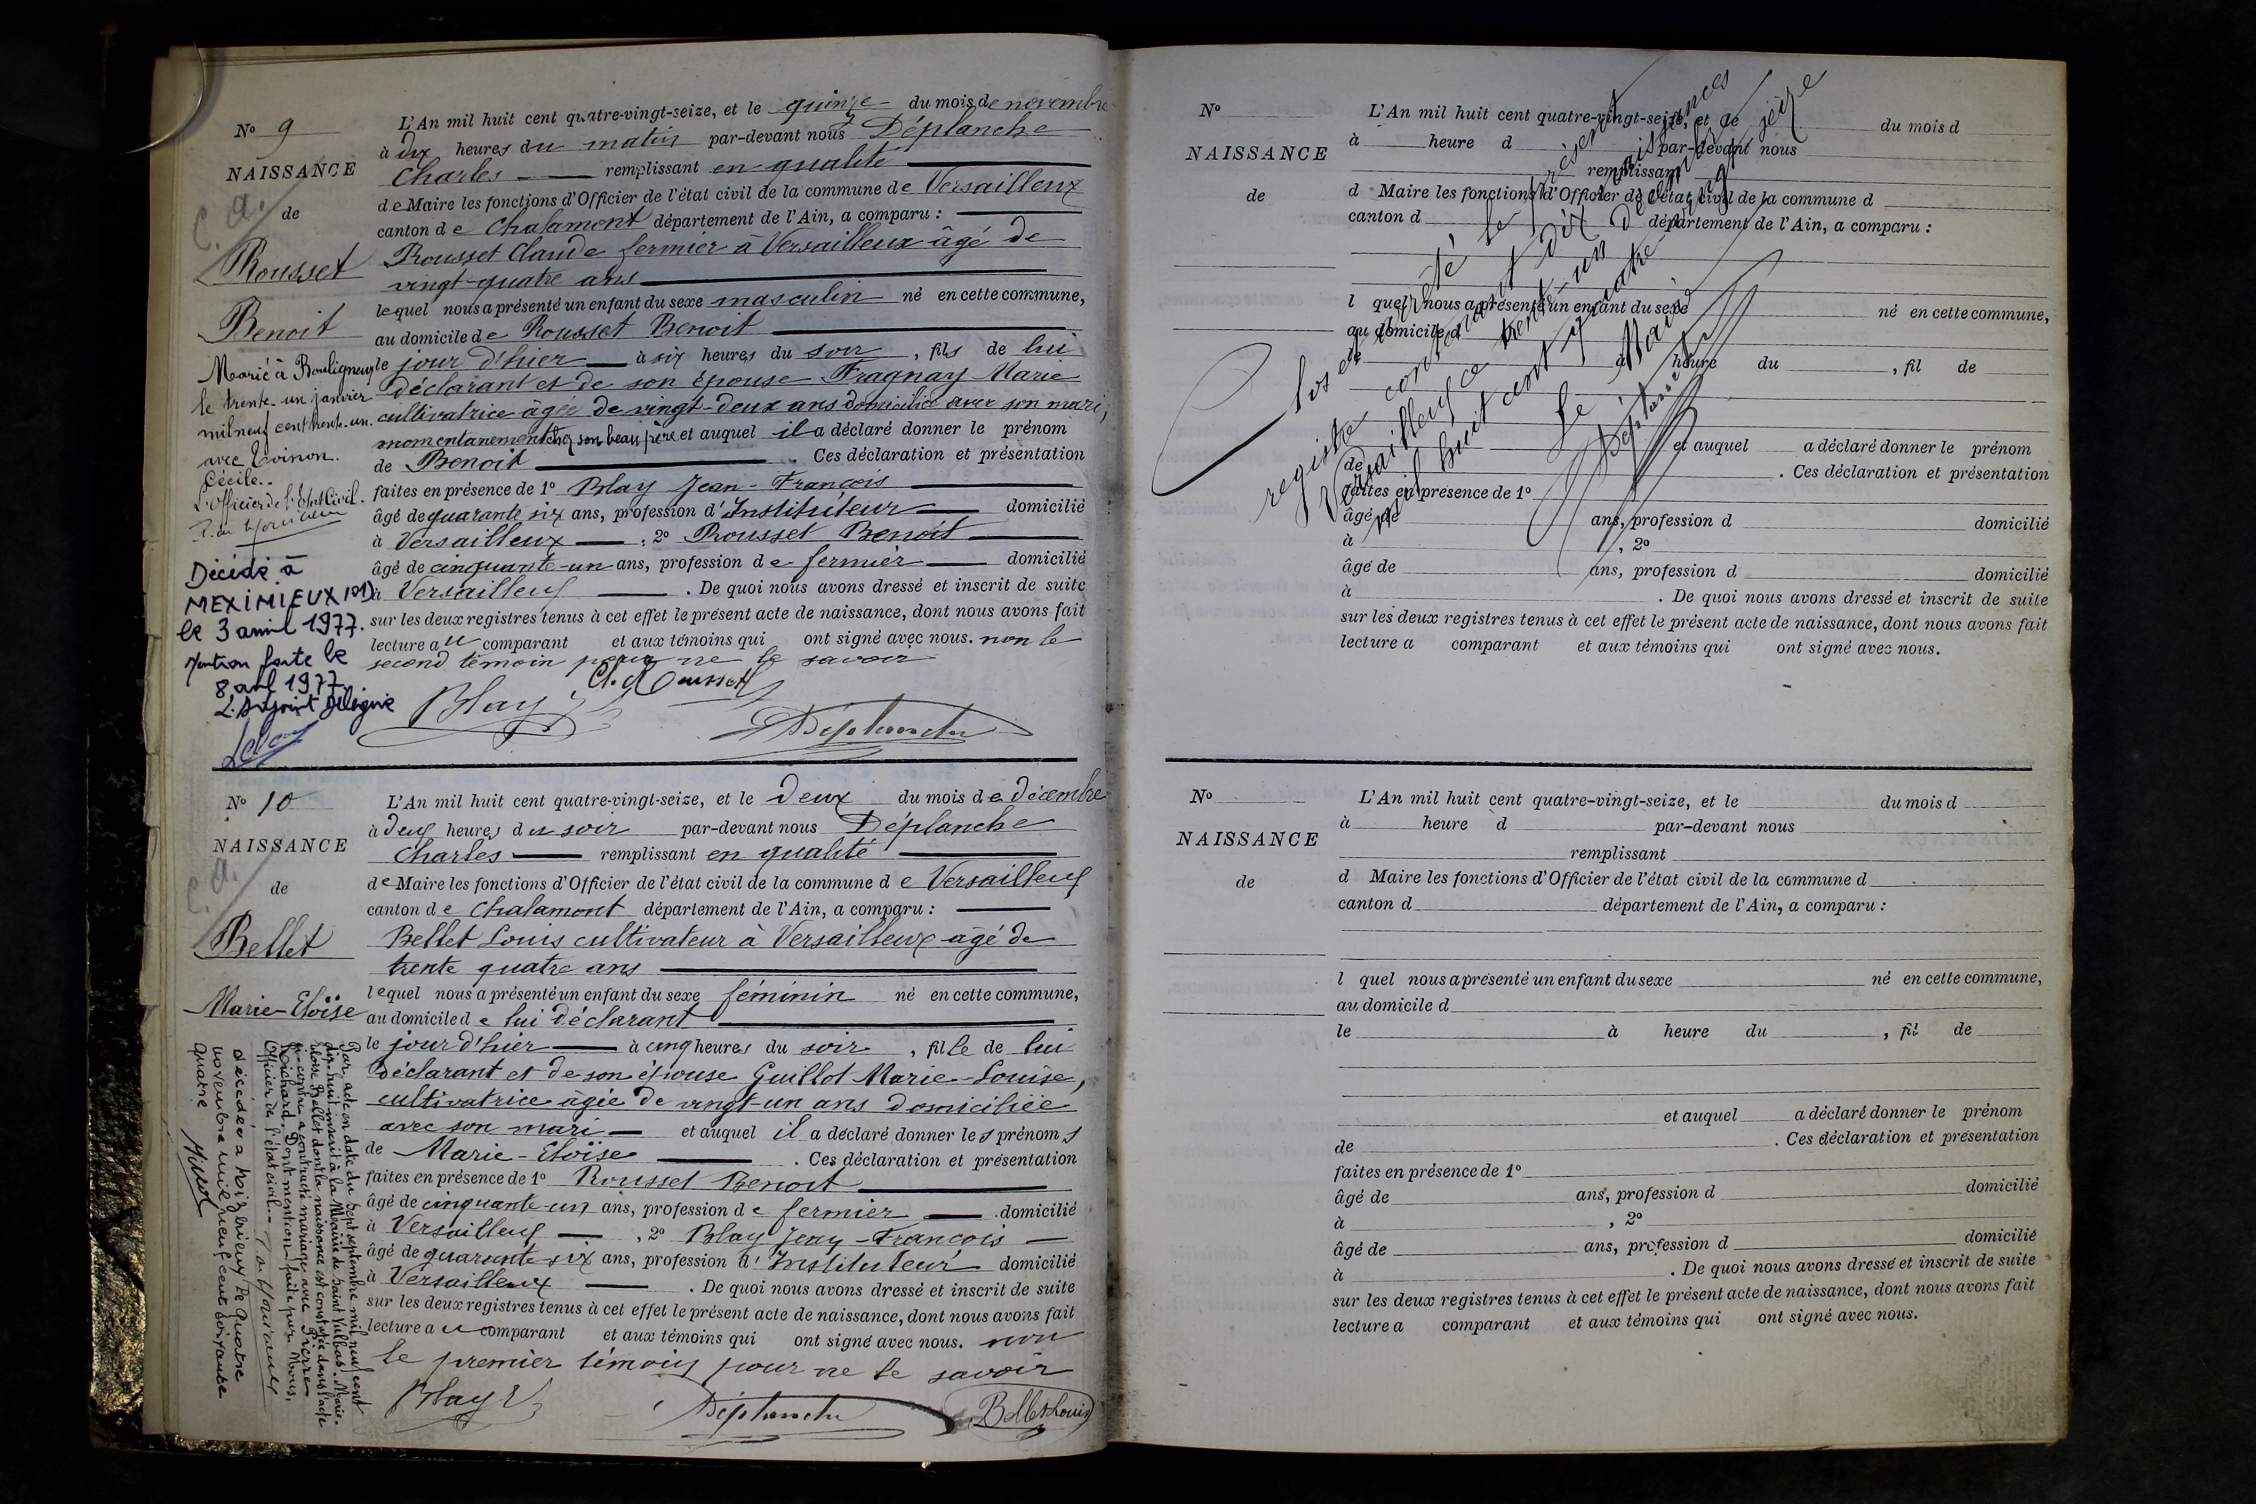 N° 9
NAISSANCE
C. a.
de
Rousset
Benoit
Marié à Bouligneux
le trente-un janvier
mil neuf cent trente-un
avec Voinon
Cécile.
L'Officier de l'Etat Civil.
Décédé à
MEXIMIEUX (01)
le 3 avril 1977.
Mention faite le
8 avril 1977
L'Adjoint Délégué
L'An mil huit cent quatre-vingt-seize, et le quinze du mois de novembre
à dix heures du matin par-devant nous Déplanche
Charles remplissant en qualité
de Maire les fonctions d'Officier de l'état civil de la commune de Versailleux
canton de Chalamont département de l'Ain, a comparu :
Rousset Claude fermier à Versailleux âgé de
vingt-quatre ans
lequel nous a présenté un enfant du sexe masculin né en cette commune,
au domicile de Rousset Benoit
le jour d'hier à six heures du soir , fils de lui
déclarant et de son épouse Fragnay Marie
cultivatrice âgée de vingt-deux ans domiciliée avec son mari,
momentanement chez son beau père et auquel il a déclaré donner le prénom
de Benoit . Ces déclaration et présentation
faites en présence de 1° Blay Jean-François
âgé de quarante six ans, profession d'Instituteur domicilié
à Versailleux , 2° Rousset Benoit
âgé de cinquante-un ans, profession de fermier domicilié
à Versailleux . De quoi nous avons dressé et inscrit de suite
sur les deux registres tenus à cet effet le présent acte de naissance, dont nous avons fait
lecture au comparant et aux témoins qui ont signé avec nous. non le
second témoin pour ne le savoir
Cl. Rousset
Blay
Déplanche
N° 10
NAISSANCE
C. a.
de
Bellet
Marie-Eloïse
Par acte en date du sept septembre mil neuf cent
dix-huit inscrit à la Mairie de Saint Vulbas, Marie-
Eloïse Bellet dont la naissance est constatée dans l'acte
ci-contre a contracté mariage avec Pierre
Richard. Dont mention faite par Nous,
Officier de l'état civil.
décédée à Loizrieux le quatre
novembre mil neuf cent soixante
quatre
L'An mil huit cent quatre-vingt-seize, et le deux du mois de décembre
à deux heures du soir par-devant nous Déplanche
Charles remplissant en qualité
de Maire les fonctions d'Officier de l'état civil de la commune de Versailleux
canton de Chalamont département de l'Ain, a comparu :
Bellet Louis cultivateur à Versailleux âgé de
trente quatre ans
lequel nous a présenté un enfant du sexe féminin né en cette commune,
au domicile de lui déclarant
le jour d'hier à cinq heures du soir , fille de lui
déclarant et de son épouse Guillot Marie-Louise,
cultivatrice âgée de vingt-un ans domiciliée
avec son mari et auquel il a déclaré donner les prénoms
de Marie-Eloïse . Ces déclaration et présentation
faites en présence de 1° Rousset Benoit
âgé de cinquante-un ans, profession de fermier domicilié
à Versailleux , 2° Blay Jean-François
âgé de quarante-six ans, profession d'Instituteur domicilié
à Versailleux . De quoi nous avons dressé et inscrit de suite
sur les deux registres tenus à cet effet le présent acte de naissance, dont nous avons fait
lecture au comparant et aux témoins qui ont signé avec nous. non
le premier témoin pour ne le savoir
Blay
Déplanche
Bellet Louis
N°
NAISSANCE
de
L'An mil huit cent quatre-vingt-seize, et le du mois d
à heure d par-devant nous
remplissant
d Maire les fonctions d'Officier de l'état civil de la commune d
canton d département de l'Ain, a comparu :
l quel nous a présenté un enfant du sexe né en cette commune,
au domicile d
le à heure du , fil de
et auquel a déclaré donner le prénom
de . Ces déclaration et présentation
faites en présence de 1°
âgé de ans, profession d domicilié
à , 2°
âgé de ans, profession d domicilié
à . De quoi nous avons dressé et inscrit de suite
sur les deux registres tenus à cet effet le présent acte de naissance, dont nous avons fait
lecture a comparant et aux témoins qui ont signé avec nous.
Clos et arrêté le présent
registre contenant dix naissances
Versailleux ce trente-un décembre
mil huit cent quatre-vingt seize
Le Maire
Déplanche
N°
NAISSANCE
de
L'An mil huit cent quatre-vingt-seize, et le du mois d
à heure d par-devant nous
remplissant
d Maire les fonctions d'Officier de l'état civil de la commune d
canton d département de l'Ain, a comparu :
l quel nous a présenté un enfant du sexe né en cette commune,
au domicile d
le à heure du , fil de
et auquel a déclaré donner le prénom
de . Ces déclaration et présentation
faites en présence de 1°
âgé de ans, profession d domicilié
à , 2°
âgé de ans, profession d domicilié
à . De quoi nous avons dressé et inscrit de suite
sur les deux registres tenus à cet effet le présent acte de naissance, dont nous avons fait
lecture a comparant et aux témoins qui ont signé avec nous.